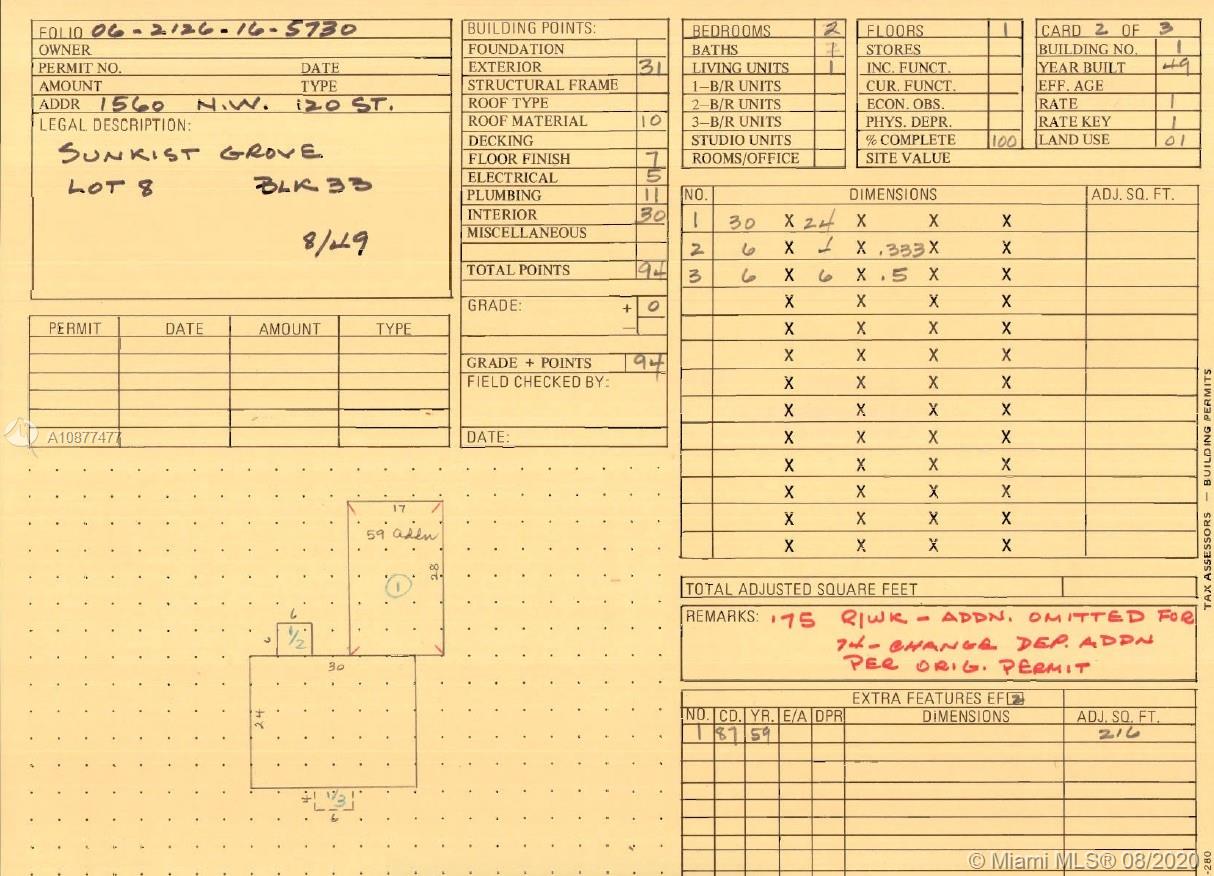 FOLIO 06-2126-16-5730
OWNER
PERMIT NO. DATE
AMOUNT TYPE
ADDR 1560 N.W. 120 ST.
LEGAL DESCRIPTION:
SUNKIST GROVE
LOT 8 BLK 33
8/49
PERMIT DATE AMOUNT TYPE
A10877477
BUILDING POINTS:
FOUNDATION
EXTERIOR 31
STRUCTURAL FRAME
ROOF TYPE
ROOF MATERIAL 10
DECKING
FLOOR FINISH 7
ELECTRICAL 5
PLUMBING 11
INTERIOR 30
MISCELLANEOUS
TOTAL POINTS 94
GRADE: + 0
—
GRADE + POINTS 94
FIELD CHECKED BY:
DATE:
BEDROOMS 2
BATHS
LIVING UNITS 1
1—B/R UNITS
2—B/R UNITS
3—B/R UNITS
STUDIO UNITS
ROOMS/OFFICE
FLOORS 1
STORES
INC. FUNCT.
CUR. FUNCT.
ECON. OBS.
PHYS. DEPR.
% COMPLETE 100
SITE VALUE
CARD 2 OF 3
BUILDING NO. 1
YEAR BUILT 49
EFF. AGE
RATE 1
RATE KEY 1
LAND USE 01
NO. DIMENSIONS ADJ. SQ. FT.
1 30 X 24 X X X
2 6 X X .333 X X
3 6 X 6 X .5 X X
X X X X
X X X X
X X X X
X X X X
X X X X
X X X X
X X X X
X X X X
X X X X
X X X X
TOTAL ADJUSTED SQUARE FEET
REMARKS: '75 R/WK - ADDN. OMITTED FOR
74 - CHANGE DEP. ADDN
PER ORIG. PERMIT
EXTRA FEATURES EF2
NO. CD. YR. E/A DPR DIMENSIONS ADJ. SQ. FT.
1 87 59 216
17
59 addn
1
28
6
6 1/2
30
24
4 1/3
6
TAX ASSESSORS — BUILDING PERMITS
-280
© Miami MLS® 08/2020